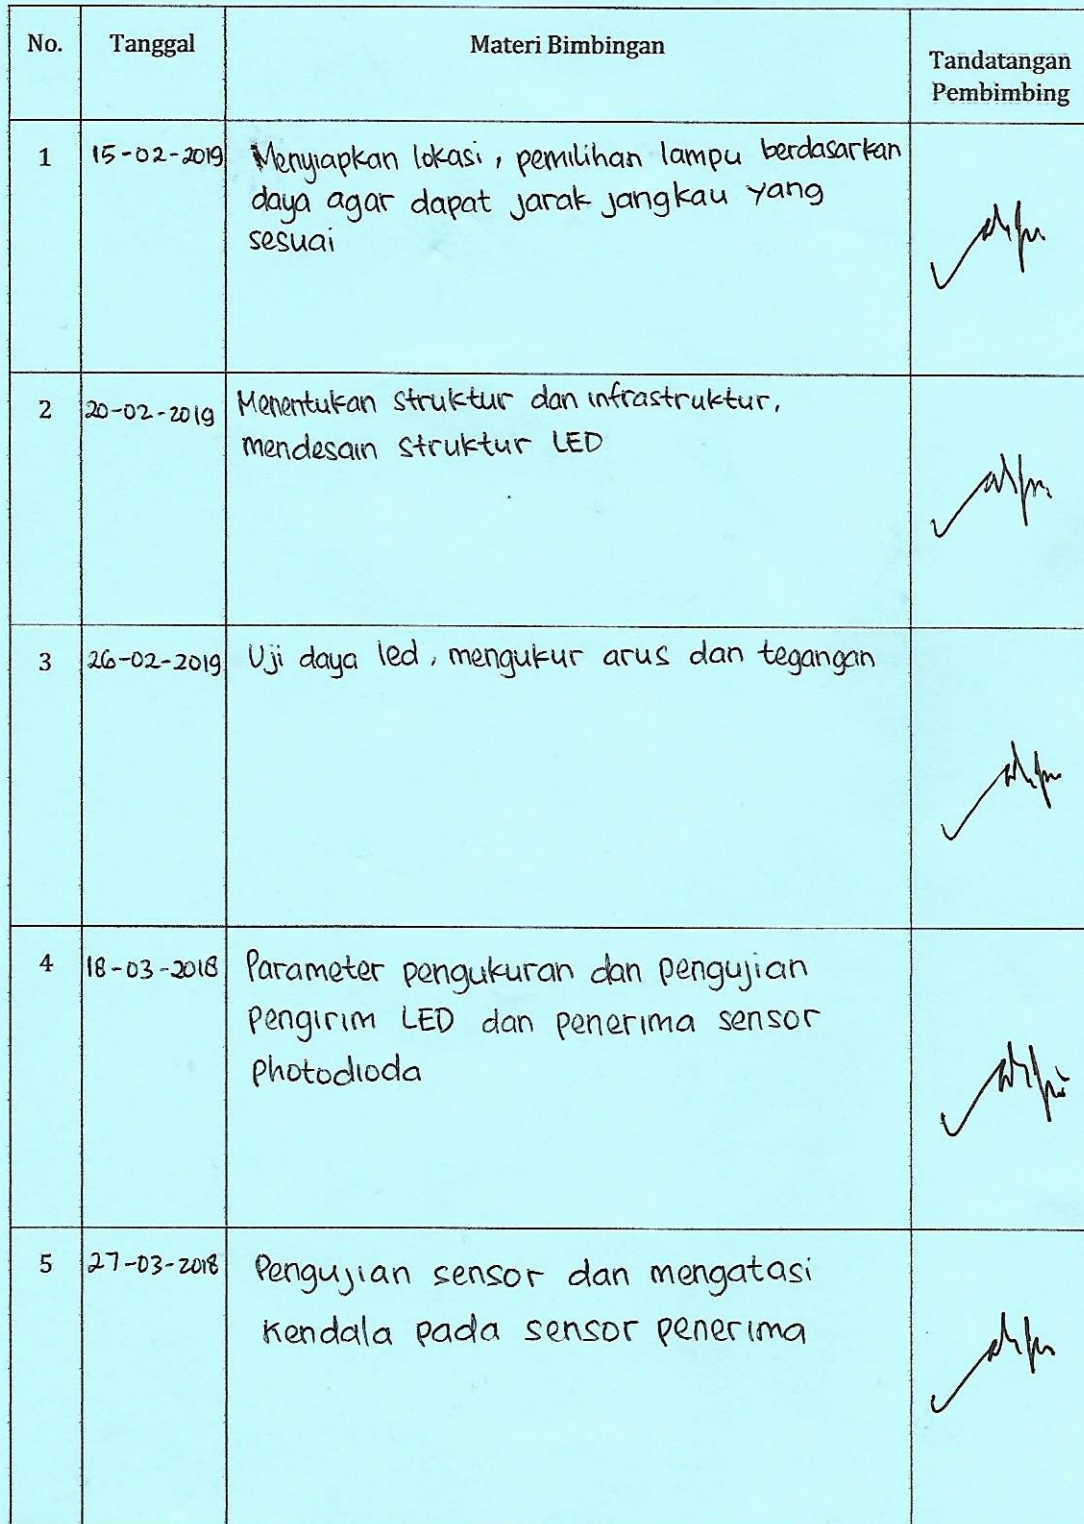 No. Tanggal Materi Bimbingan Tandatangan
Pembimbing
1 15-02-2019 Menyiapkan lokasi, pemilihan lampu berdasarkan
daya agar dapat jarak jangkau yang
sesuai
2 20-02-2019 Menentukan struktur dan infrastruktur,
mendesain struktur LED
3 26-02-2019 Uji daya led, mengukur arus dan tegangan
4 18-03-2018 Parameter pengukuran dan pengujian
pengirim LED dan penerima sensor
photodioda
5 27-03-2018 Pengujian sensor dan mengatasi
kendala pada sensor penerima